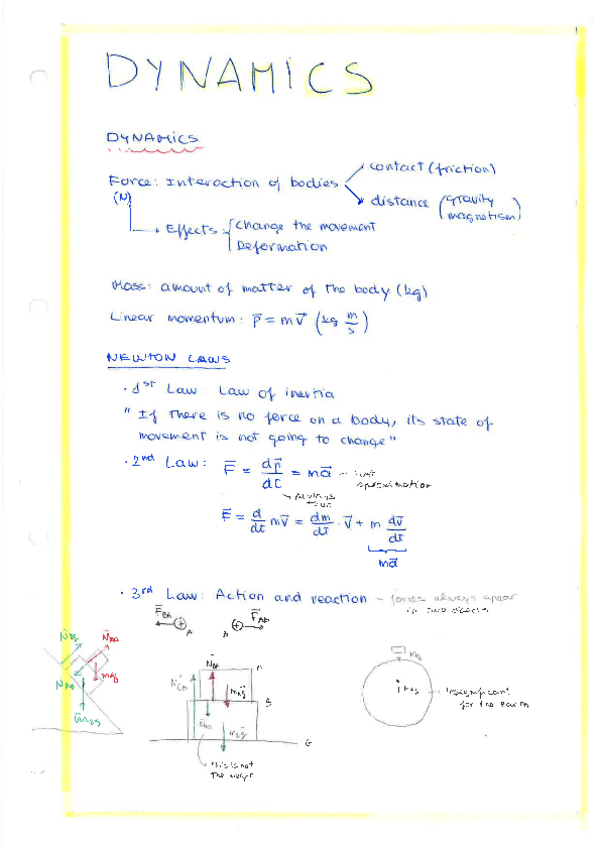 DYNAMICS
DYNAMICS
Force: Interaction of bodies
contact (friction)
distance (gravity magnetism)
(N)
Effects: { Change the movement
Deformation
Mass: amount of matter of the body (kg)
Linear momentum: p⃗ = mv⃗ (kg m/s)
NEWTON LAWS
· 1st Law: Law of inertia
"If there is no force on a body, its state of
movement is not going to change"
· 2nd Law: F⃗ = dp⃗/dt = ma⃗ – just
aproximation
always
true
F⃗ = d/dt mv⃗ = dm/dt · v⃗ + m dv⃗/dt
ma⃗
· 3rd Law: Action and reaction – forces always apear
in two
F⃗BA
F⃗AB
A
N⃗BA
mAg⃗
B
mBg⃗
G
this is not
the weight
insignificant
for the earth